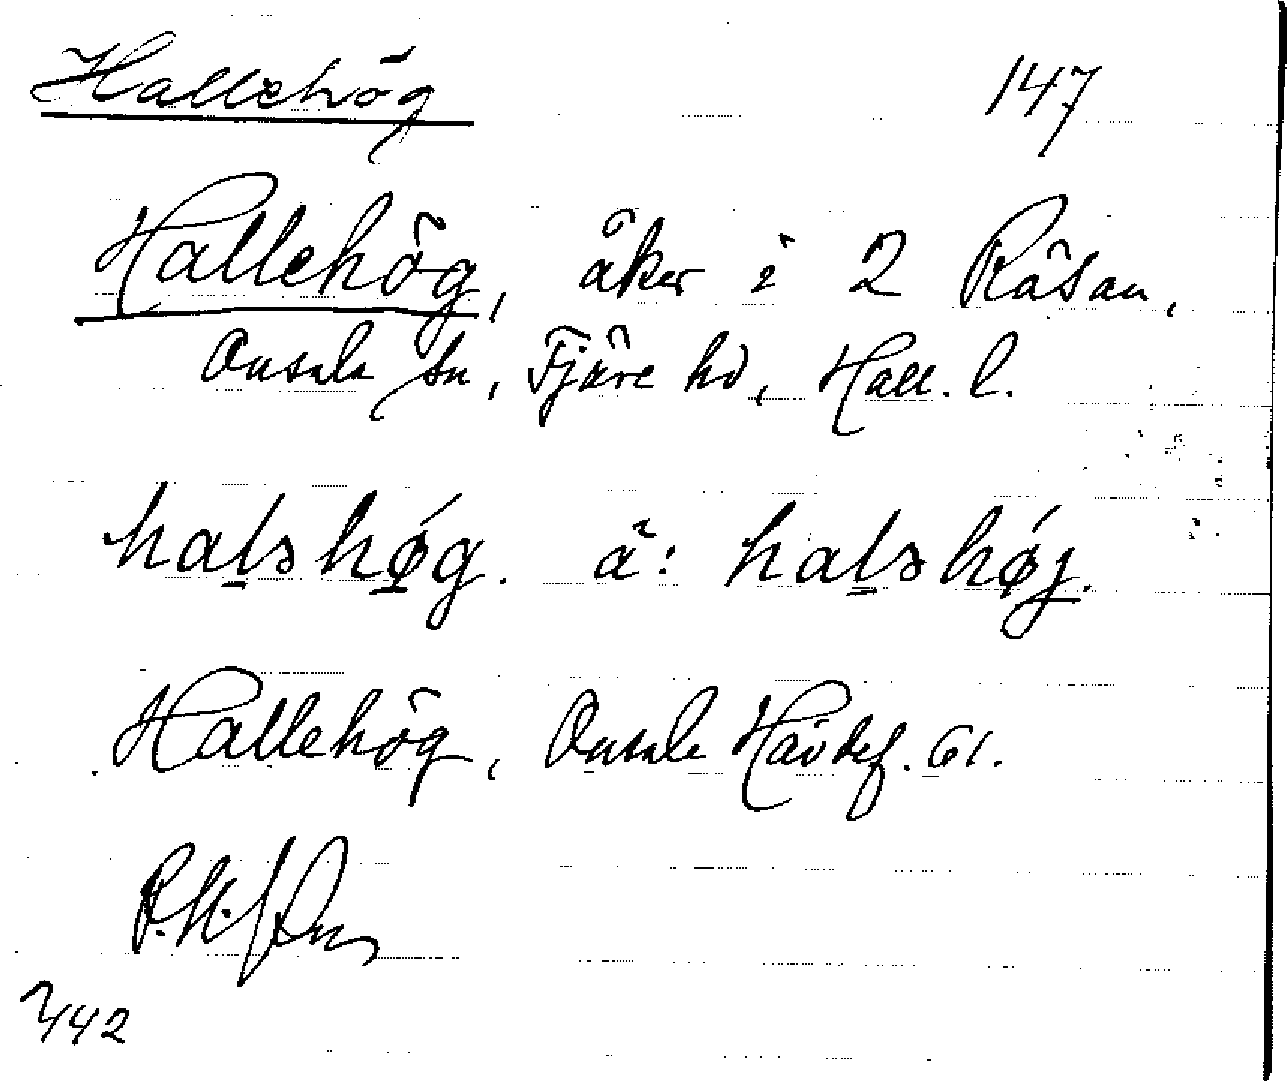 Hallehög 147
Hallehög, åker i 2 Råsan,
Onsala sn, Fjäre hd, Hall. l.
halshøg. ä: halshøj.
Hallehög, Onsala Hävdef. 61.
442